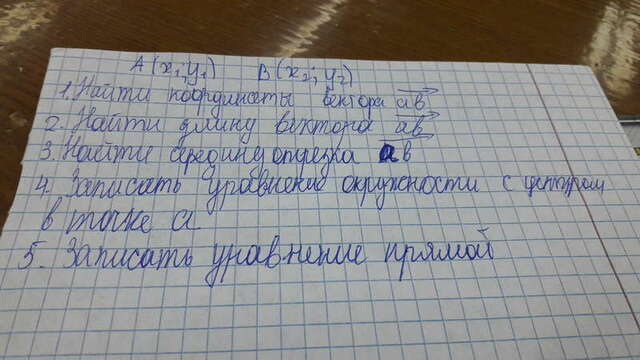 A (x₁; y₁) B (x₂; y₂)
1. Найти координаты вектора ав
2. Найти длину вектора ав
3. Найти средину отрезка ав
4. Записать уравнение окружности с центром
в точке а
5. Записать уравнение прямой